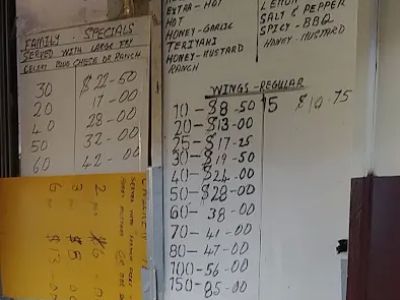 FAMILY SPECIALS
SERVED WITH LARGE FRY
CELERY BLUE CHEESE OR RANCH
30 $22-50
20 17-00
40 28-00
50 32-00
60 42-00
EXTRA-HOT
HOT
HONEY-GARLIC
TERIYAKI
HONEY-MUSTARD
RANCH
LEMON
SALT & PEPPER
SPICY-BBQ
HONEY-MUSTARD
WINGS-REGULAR
10-$8.50 15 $10.75
20-$13-00
25-$17-25
30-$19-50
40-$24-00
50-$28-00
60-38-00
70-41-00
80-47-00
100-56-00
150-85-00
2 $6
3 $5 00
6 $13-00